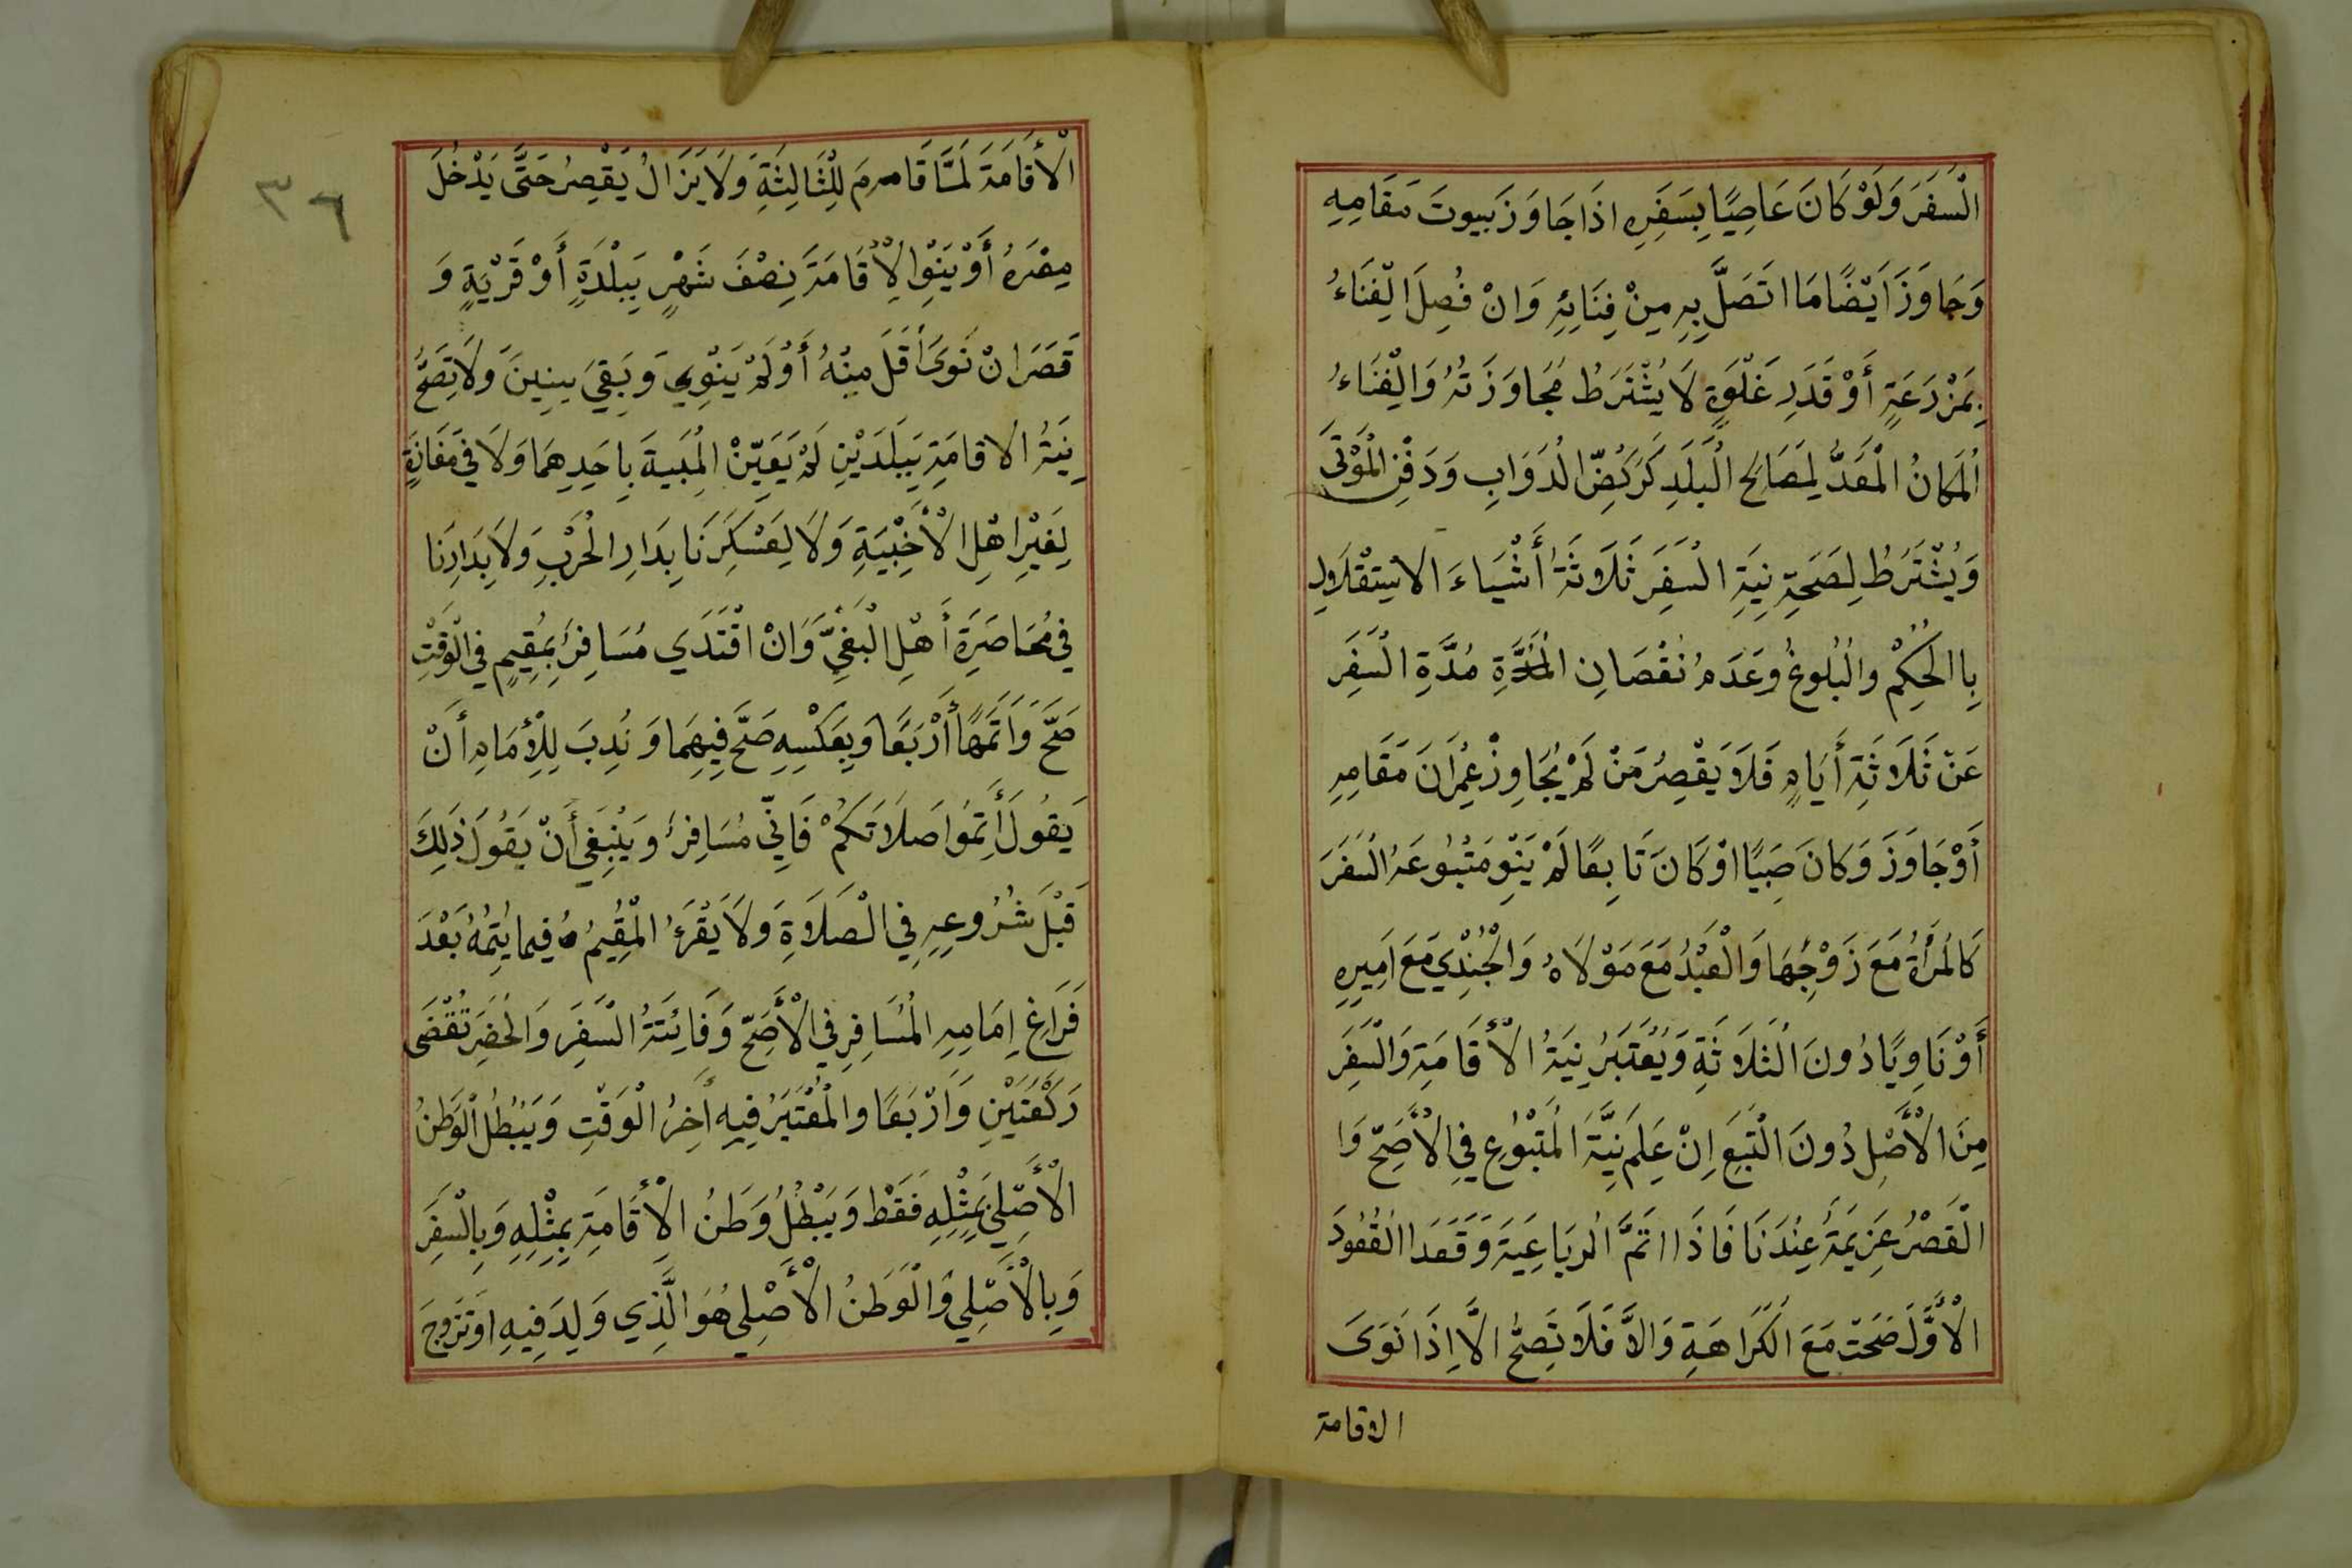 السَفَرَ وَلَوْ كَانَ عَاصِيًا بِسَفَرِهِ اذَا جَاوَزَ بيوتَ مَقَامِهِ
وَجَاوَزَ اَيْضًا مَا اتَصَلَّ بِهِ مِنْ فِنَائِهِ وَانْ فُصِلَ الِفنَاءُ
بِمَزْرَعَةٍ أَوْ قَدَرِ غَلْوَةٍ لَا يُشْتَرَطُ مُجَاوَزَتُهُ وَالْفِنَاءُ
اَلمَكانُ الْمُعَدُّ لِمَصَالِحِ الْبَلَدِ كَرَكْضِ الدَوَابِ وَدَفْنِ الْمَوْتَى
وَيُشْتَرَطُ لِصَحَةِ نِيَةِ السَفَرِ ثَلَاثَةُ أَشْيَاءَ الاسْتِقْلَالِ
بِاالحُكِمْ والْبُلوغُ وعَدَمُ نُقْصَانِ الْمُدَّةِ مُدَّةِ السَفَرِ
عَنْ ثَلَاثَةِ أَيَامٍ فَلَا يَقْصِرُ مَنْ لَمْ يُجَاوِزْ عِمْرَانَ مَقَامِهِ
أَوْ جَاوَزَ وَكانَ صَبِيًا اوْ كَانَ تَابِعًا لَمْ يَنْوِ مَتْبُوعَهُ السَفَرَ
كَالمَرْأَةُ مَعَ زَوْجِهَا وَالْعَبْدُ مَعَ مَوْلَاهُ وَالْجُنْدِي مَعَ اَمِيرِهِ
أَوْ نَاوِيًا دُونَ الثَلَاثَةِ وَيُعْتَبَرُ نِيَةُ الْأقَامَةِ وَالسَفَرِ
مِنَ الْأَصْلِ دُونَ التَبَعِ اِنْ عَلِمَ نِيَّةَ المَتْبُوْعِ فِي الْأَصَحِّ وَا
الْقَصْرُ عَزِيمَةُ عِنْدَنَا فَاذَا اتَمَّ الرُبَاعِيَةَ وَقَعَدَ الْقُعُودَ
الْأَوَّلَ صَحَتْ مَعَ الكَرَاهَةِ وَالَّا فَلَا تَصِحُّ الَّا اِذَا نَوَىَ
الاقامة
٣٦
الْأَقَامَةَ لَمَّا قَامَ لِلثَّالِثَةِ وَلَا يَزَالُ يَقْصِرُ حَتَّى يَدْخُلَ
مِصْرَهُ أَوْ يَنْوِا الْأِقَامَةَ نِصْفَ شَهْرٍ بِبَلْدَةٍ أَوْ قَرْيَةٍ وَ
قَصَرَ انْ نَوَىَ أَقَلَ مِنْهُ أَوْ لَمْ يَنْوِي وَبَقِيَ سِنِينَ وَلَا تَصِحُّ
نِيَةُ الاقامَةِ بِبَلَدَيْنِ لَمْ يَعَيِّنْ الْمَبِيَةَ بِاحَدِهِمَا وَلَا فِي مَفَازَةٍ
لِغَيْرِ اهْلِ الْأَخْبِيَةِ وَلَا لِعَسْكَرِنَا بِدَارِ الْحَرْبِ وَلَا بِدَارِنَا
فِي مُحَاصَرَةِ أَهْلِ الْبَغْيِّ وَانْ اقْتَدَي مُسَافِرُ بِمُقِيمٍ فِي الْوَقْتِ
صَحَّ وَاَتَمَّهَا أَرْبَعًا وَبِعَكْسِهِ صَحَّ فِيهِمَا وَنُدِبَ لِلْأِمَامِ أَنْ
يَقُولَ أَتِمُوا صَلَاتَكُمْ فَاِنِّي مُسَافِرُ وَيَنْبَغِي أَنْ يَقُولَ ذَلِكَ
قَبْلَ شُرُوعِهِ فِي الْصَلَاوةِ وَلَا يَقْرَءُ الْمُقِيمُ فِيما يُتِمُهُ بَعْدَ
فَرَاغِ اِمَامِهِ المُسَافِرِ فِي الْأَصَحِّ وَفَائِتَةُ السَّفَرِ وَالْحَضَرِ تُقْضَى
رَكْعَتَيْنِ وَاَرْبَعًا والْمُعْتَبَرُ فِيهِ اَخِرُ الْوَقْتِ وَيَبْطُلُ الْوَطَنُ
الْأَصْلِيُ بِمِثْلِهِ فَقَطْ وَيَبْطُلُ وَطَنُ الْأِقَامَةِ بِمِثْلِهِ وَبِالْسَفَرِ
وَبِالْأَصْلِي وَالْوَطَنُ الْأَصْلِي هُوَ الَّذِي وَلِدَ فِيهِ اوْ تَزَوجَ